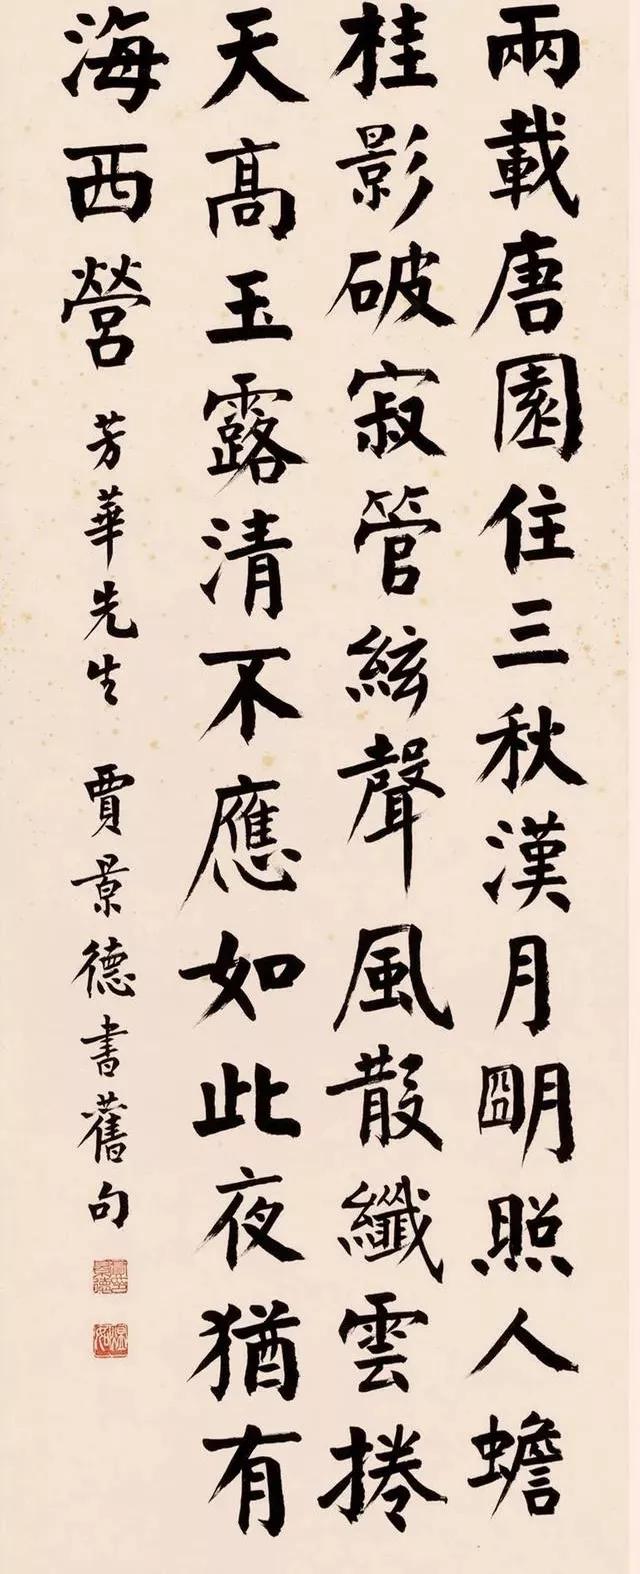 兩載唐園住三秋漢月朙照人蟾
桂影破寂管絃聲風散纖雲捲
天高玉露清不應如此夜猶有
海西營
芳華先生 賈景德書舊句